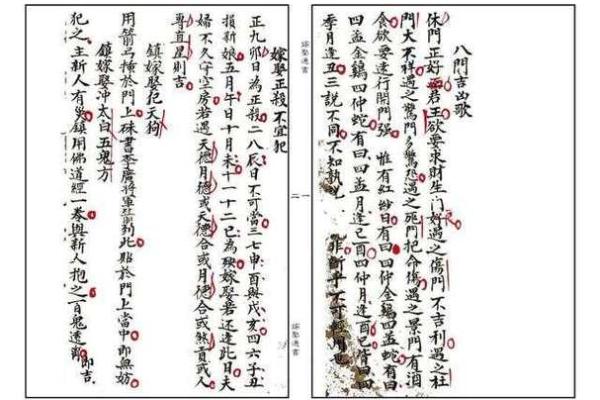 八門吉凶歌
休門正好君王欲要求財生門好過之傷門不吉利遇之杜
門大不祥遇之驚門多驚恐遇之死門把命傷遇之景門有酒
食欲要逢行開門强 惟有紅紗日有曰四仲金鷄四孟蛇有曰
四孟金鷄四仲蛇有曰四孟月逢己酉四仲月逢己酉皆曰四
季月逢丑三說不同不知孰 非斷乎不可輕用也
嫁娶通書
二一
嫁娶通書
嫁娶正殺不宜犯
正九卯日為正殺二八辰日不可當三七申酉與戌亥四六子丑
損新娘五月午日十月未十一十二巳為殃嫁娶若还逢此日夫
婦不久守空房若遇天德月德或天德合或月德合或煞貢或人
專直星則吉
鎮嫁娶犯天狗
用箭弓掛於門上硃書李廣將軍箭此貼於門上當中即無妨
鎮嫁娶沖太白五鬼方
犯之主新人有災鎮用佛道經一卷與新人抱之百鬼遠即吉